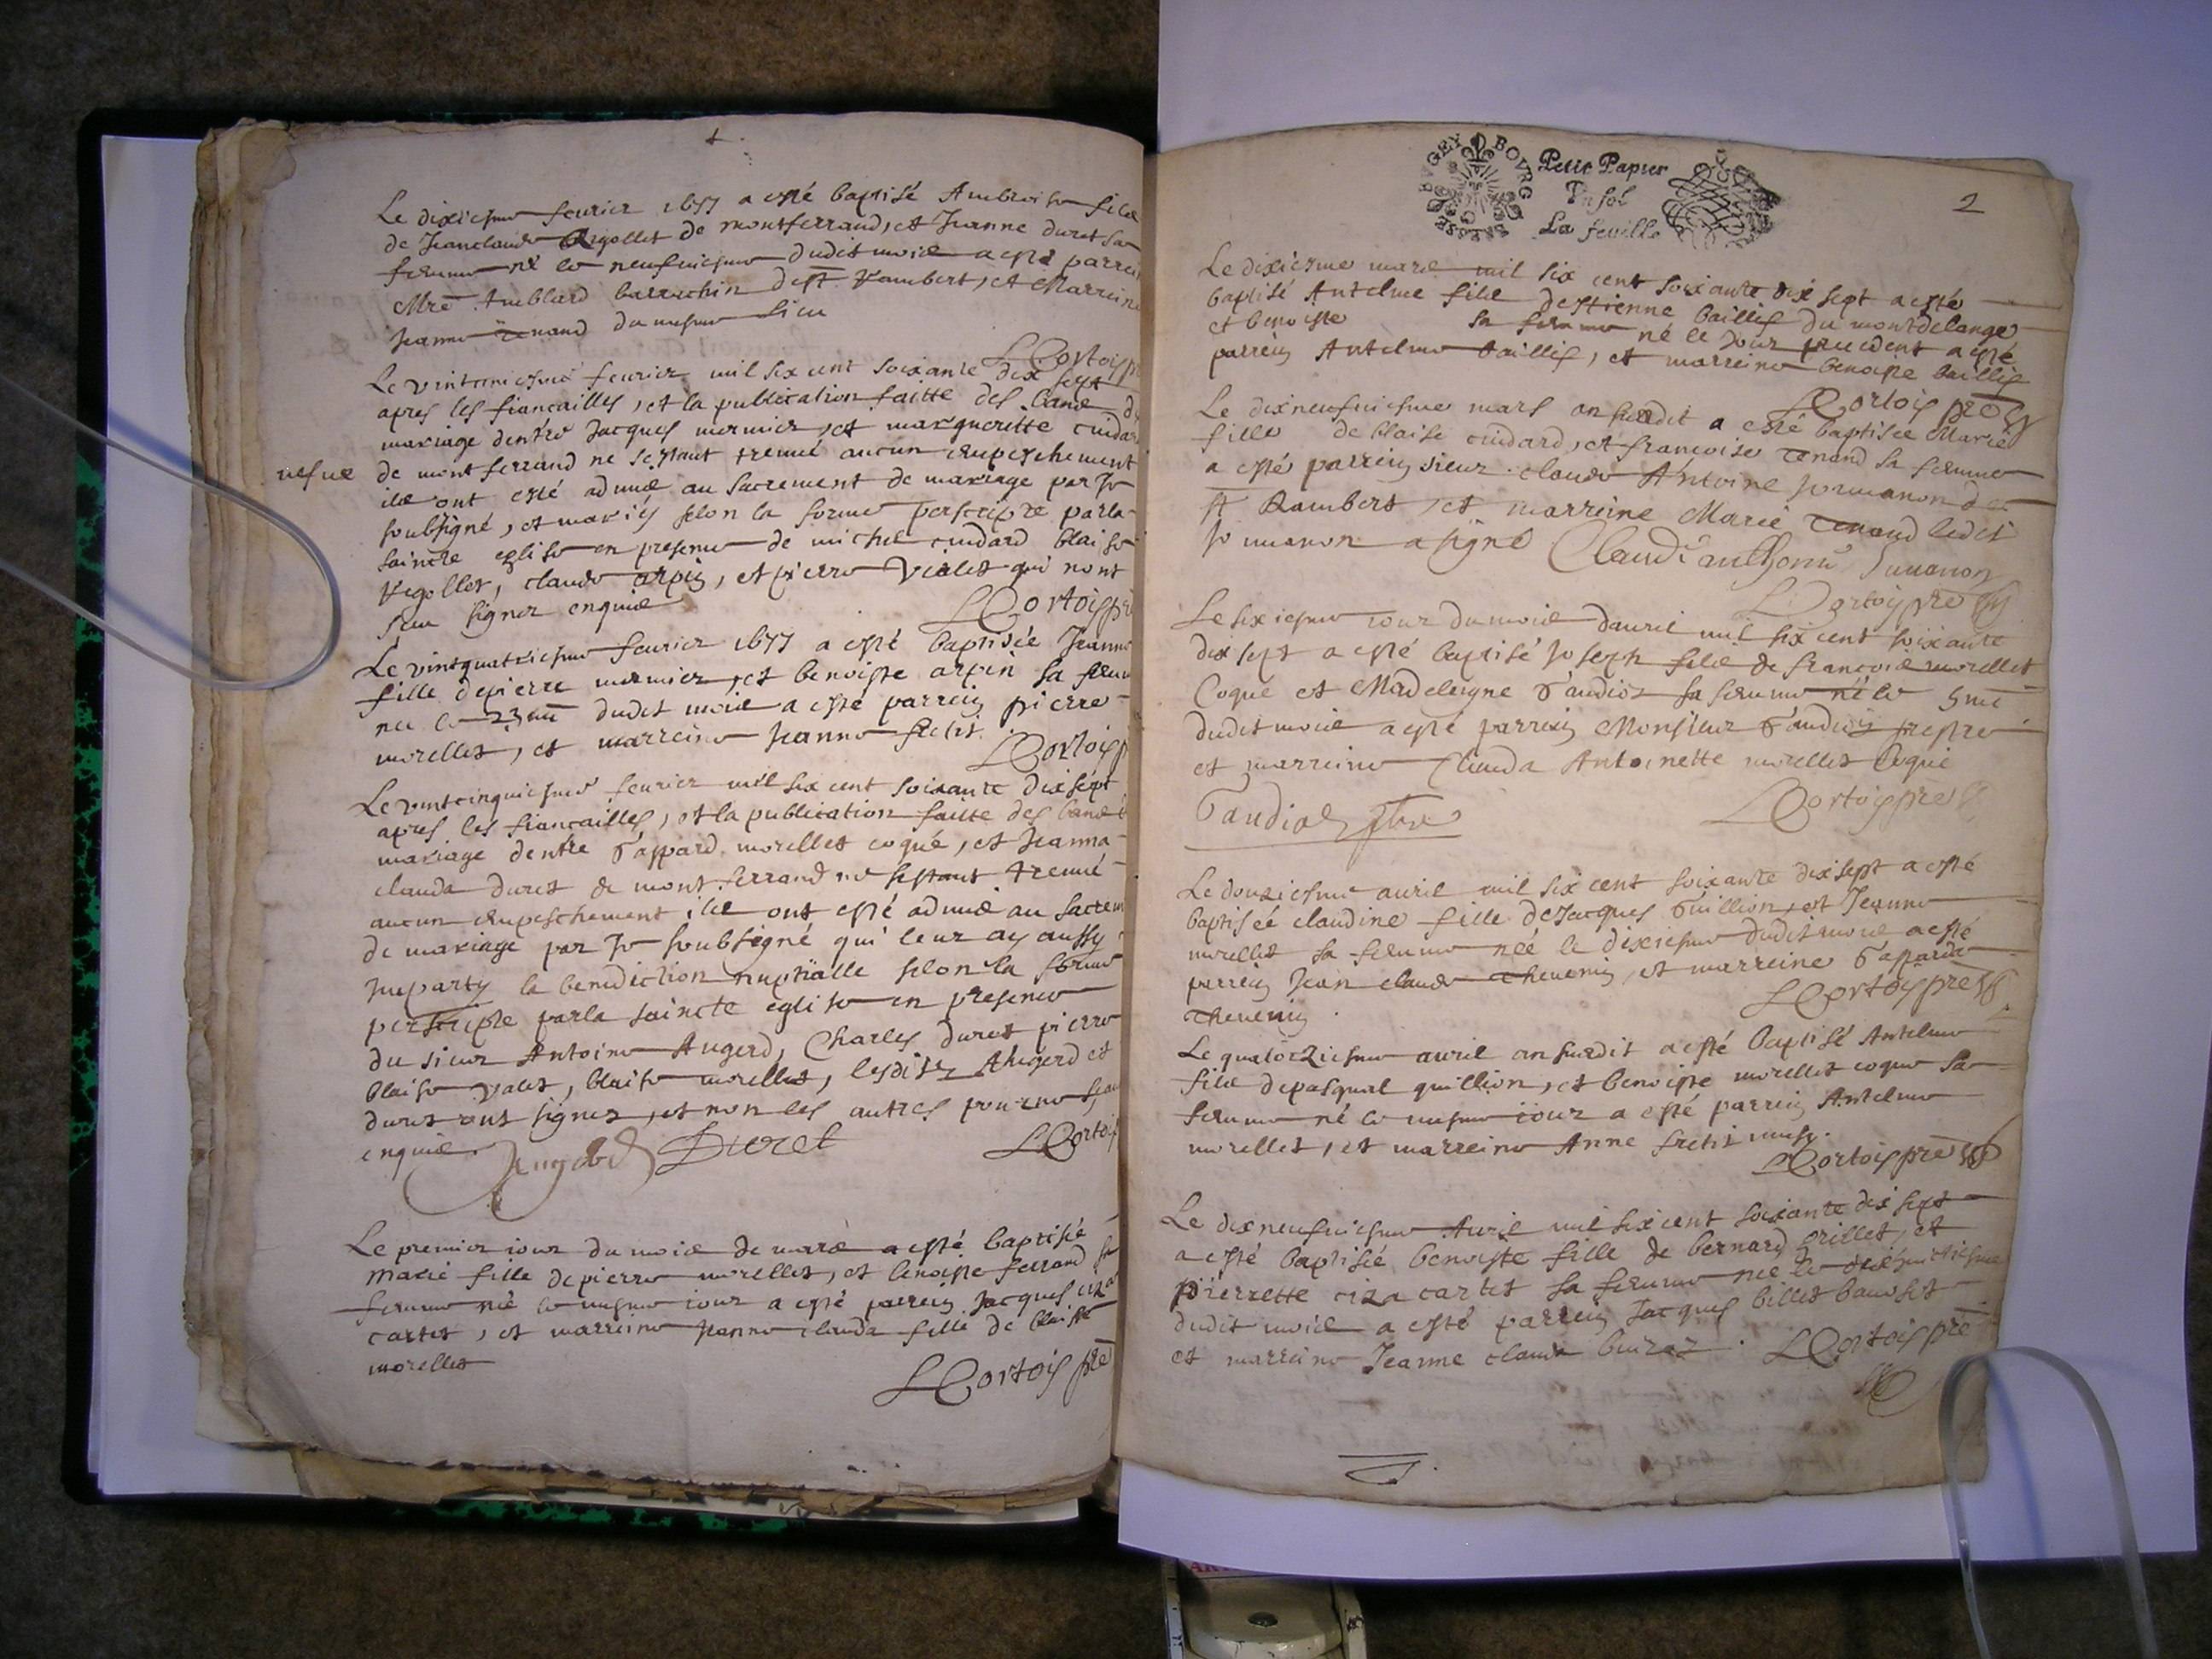 Le dixiesme feurier 1677 a esté baptisé Ambroise filz
de Jeanclaude Rigollet de montferrand, et Jeanne duret sa
femme né le neufuiesme dudit mois a esté parrei
Mre Amblard barruchin de St Rambert, et Marreine
Jeanne Tenand du mesme lieu
LCortois p
Le vintuniesme feurier mil six cent soixante dix sept
apres les fiancailles, et la publication faitte des bans d
mariage dentre Jacques mermier, et marguerette cuidar
vefue
de montferrand ne sestant treuué aucun empeschement
ilz ont esté admis au sacrement de mariage par Je
soubsigné, et mariés selon la forme perscripte parla
saincte eglise en presence de michel cuidard blaise
Rigollet, claude arpin, et pierre Violet qui nont
sceu signer enquis
LCortois pr
Le vintquatriesme feurier 1677 a esté baptisée Jeanne
fille depierre mermier, et benoiste arpin sa femm
nee le 23me dudit mois a esté parrein pierre
morellet, et marreine Jeanne fretis.
LCortois p
Le vintcinquiesme feurier mil six cent soixante dixsept
apres les fiancailles, et la publication faitte des bans d
mariage dentre Gaspard morellet coqué, et Jeanna
clauda duret de montferrand ne sestant treuué
aucun empeschement ilz ont esté admis au sacrem
de mariage par Je soubsigné qui leur ay aussy
Jmparty la benediction nuptialle selon la forme
perscripte parla saincte eglise en presence
du sieur Antoine Augerd, Charles duret pierre
blaise valet, blaise morellet, lesdits Augerd et
duret ont signez, et non les autres pour ne scau
enquis. Augerd Duret LCortois
Le premier iour du mois de mars a esté baptisée
marie fille depierre morellet, et benoiste ferrand sa
femme née le mesme iour a esté parrein Jacques ciza
cartet, et marreine Jeanne clauda fille de blaise
morellet
LCortois pre
BRESSE BVGEY BOVRG
Petit Papier
Vn sol
La feuille
2
Le dixiesme mars mil six cent soixante dix sept a esté
baptisé Antelme filz destienne baillif du montdelange
et benoiste sa femme né le Jour precedent a esté
parrein Antelme baillif, et marreine benoiste baillif
LCortois pre
Le dixneufuiesme mars an susdit a esté baptisee Marie
fille de blaise cuidard, et francoise Tenand sa femme
a esté parrein sieur claude Antoine Jomanon de
St Rambert, et marreine Marie Tenand ledit
Jomanon a signé Claude anthoine Jumanon
LCortois pre
Le sixiesme iour du mois dauril mil six cent soixante
dix sept a esté baptisé Joseph filz de francois morellet
Coqué et Madeleigne Gaudioz sa femme né le 5me
dudit mois a esté parrein Monsieur Gaudioz prestre
et marreine Clauda Antoinette morellet Coqué
Gaudioz ptre LCortois pre
Le douziesme auril mil six cent soixante dixsept a esté
baptisée claudine fille deJacques Guillion, et Jeanne
morellet sa femme née le dixiesme dudit mois a esté
parrein Jean claude Theuenin, et marreine Gasparde
Theuenin. LCortois pre
Le quatorziesme auril an susdit a esté baptisé Antelme
filz depasqual guillion, et benoiste morellet coque sa
femme né le mesme iour a esté parrein Antelme
morellet, et marreine Anne fretis
LCortois pre
Le dixneufuiesme Auril mil six cent soixante dix sept
a esté baptisée benoiste fille de bernard grillet, et
pierrette ciza cartet sa femme nee le dixhuictiesme
dudit mois a esté parrein Jacques billet
et marreine Jeanne clauda buiraz. LCortois pre